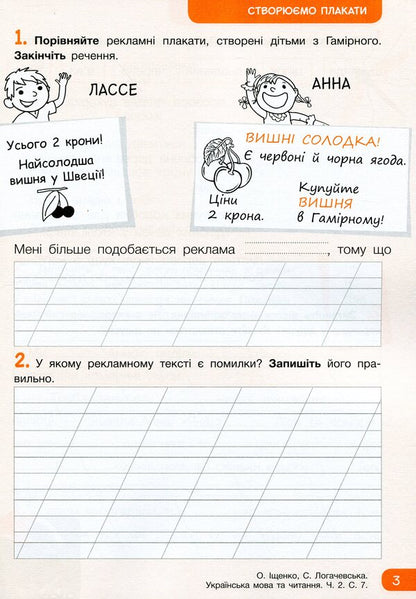 СТВОРЮЄМО ПЛАКАТИ
1. Порівняйте рекламні плакати, створені дітьми з Гамірного.
Закінчіть речення.
ЛАССЕ
АННА
Усього 2 крони!
Найсолодша
вишня у Швеції!
ВИШНІ СОЛОДКА!
Є червоні й чорна ягода.
Ціни
2 крона.
Купуйте
ВИШНЯ
в Гамірному!
Мені більше подобається реклама ...................., тому що
2. У якому рекламному тексті є помилки? Запишіть його пра-
вильно.
О. Іщенко, С. Логачевська.
Українська мова та читання. Ч. 2. С. 7.
3